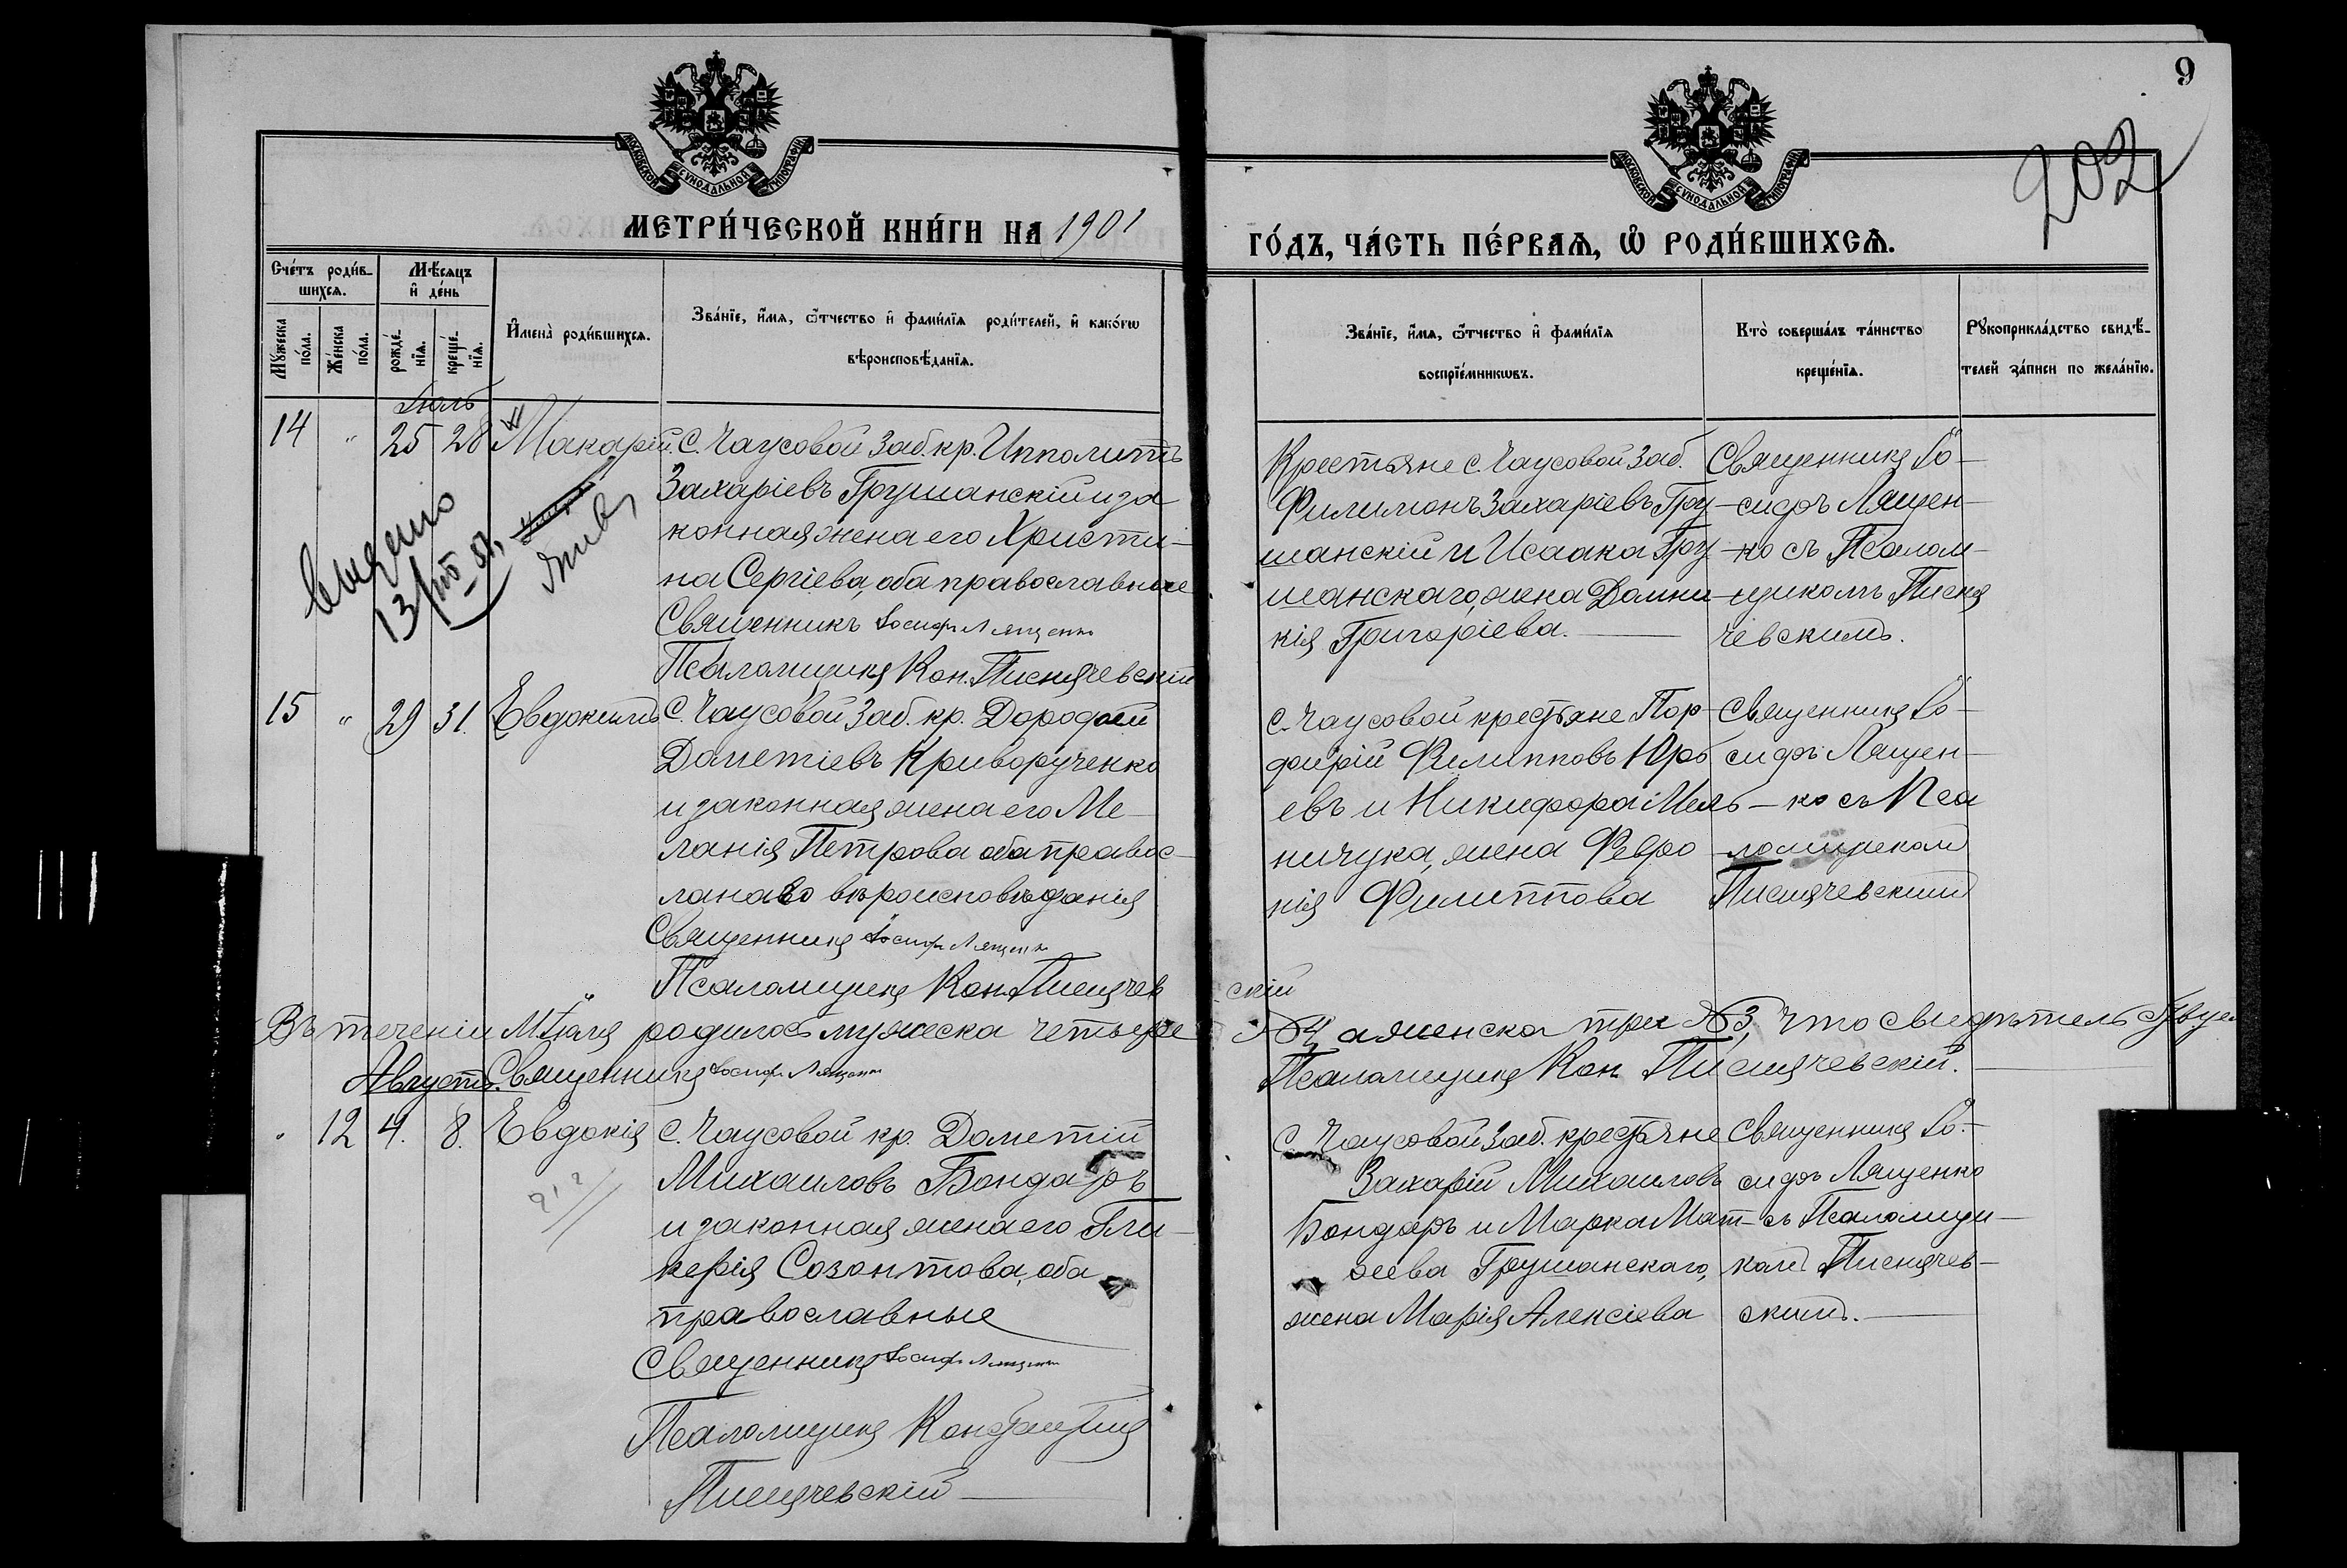 9
202
МОСКОВСКОЙ СУНОДАЛЬНОЙ ТИПОГРАФІИ
МОСКОВСКОЙ СУНОДАЛЬНОЙ ТИПОГРАФІИ
МЕТРИ́ЧЕСКОЙ КНИ́ГИ НА 1901
ГО́ДЪ, ЧА́СТЬ ПЕ́РВАѦ, Ѿ РОДИ́ВШИХСѦ.
Сче́тъ роди́в-
шихсѧ.
Мѣ́сѧцъ
и҆ де́нь
Мꙋ́жеска
по́ла.
Же́нска
по́ла.
рожде́-
нїѧ.
креще́-
нїѧ.
И҆мена̀ роди́вшихсѧ.
Зва́нїе, и҆́мѧ, ѻ҆́тчество и҆ фами́лїѧ роди́телей, и҆ како́гѡ
вѣроисповѣ́данїѧ.
Зва́нїе, и҆́мѧ, ѻ҆́тчество и҆ фами́лїѧ
воспрїе́мникѡвъ.
Кто̀ соверша́лъ та́инство
креще́нїѧ.
Рꙋкоприкла́дство свидѣ́-
телей за́писи по жела́нїю.
Іюль
14 " 25 28 Макарій
С. Чаусовой Заб. кр. Ипполитъ
Захаріевъ Грушанскій и за
конная жена его Христи-
на Сергіева, оба православные
Священникъ Іосифъ Лященко
Псаломщикъ Кон. Писнячевскій
13/VIII
Крестьяне с. Чаусовой Заб.
Филимонъ Захаріевъ Гру-
шанскій и Исаака Гру-
шанскаго, жена Домни-
кія Григоріева.
Священникъ Іо-
сифъ Лящен-
ко съ Псалом-
щикомъ Писня
чевскимъ.
15 " 29 31. Евдокимъ
С. Чаусовой Заб. кр. Дорофей
Дометіевъ Криворученко
и законная жена его Ме-
ланія Петрова оба правос-
лонаво вѣроисповѣданія
Священникъ Іосифъ Лященко
Псаломщикъ Кон. Писнячев
скій
с. Чаусовой крестьяне Пор-
фирій Филипповъ Юрь
евъ и Никифора Мель-
ничука, жена Февро
нія Филиппова
Священникъ Іо-
сифъ Лящен-
ко съ Пса
ломщикомъ
Писнячевскимъ
Въ теченіи м. Іюля родилось мужеска четыре
№ 4, а женска три № 3, что свидѣтельствуемъ
Августъ. Священникъ Іосифъ Лященко
Псаломщикъ Кон. Писнячевскій.
" 12 4. 8. Евдокія
с. Чаусовой кр. Дометій
Михаиловъ Бондаръ
и законная жена его Гли-
керія Созонтова, оба
православные
Священникъ Іосифъ Лященко
Псаломщикъ Константинъ
Писнячевскій
С. Чаусовой Заб. крестьяне
Захарій Михаиловъ
Бондаръ и Марка Мат-
ѳеева Грушанскаго,
жена Марія Алексіева
Священникъ Іо-
сифъ Лященко
съ Псаломщи-
комъ Писнячев-
скимъ.